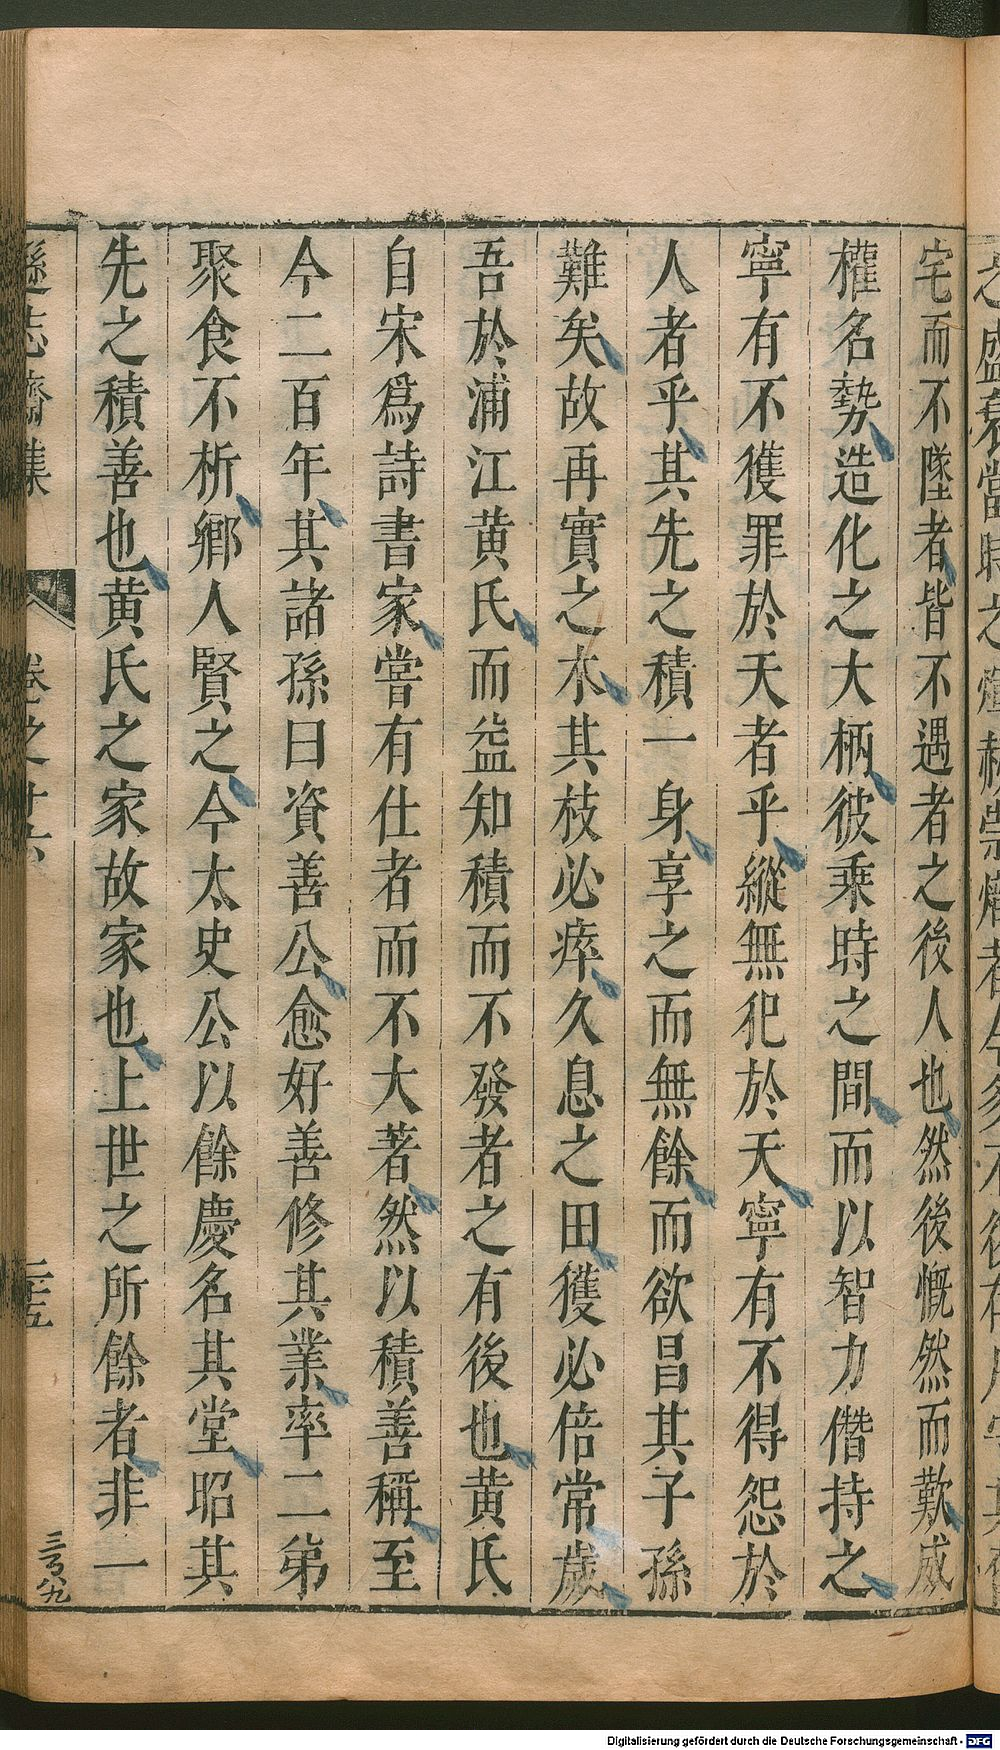 宅而不墜者皆不遇者之後人也然後慨然而歎威
權名勢造化之大柄彼乘時之間而以智力僭持之
寧有不獲罪於天者乎縱無犯於天寧有不得怨於
人者乎其先之積一身享之而無餘而欲昌其子孫
難矣故再實之木其枝必瘁久息之田獲必倍常歲
吾於浦江黃氏而益知積而不發者之有後也黃氏
自宋爲詩書家嘗有仕者而不大著然以積善稱至
今二百年其諸孫曰資善公愈好善修其業率二弟
聚食不析鄉人賢之今太史公以餘慶名其堂昭其
先之積善也黃氏之家故家也上世之所餘者非一
遜志齋集
卷之十六
三十五
Digitalisierung gefördert durch die Deutsche Forschungsgemeinschaft - DFG